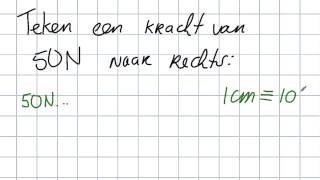 Teken een kracht van
50N naar rechts:
50N... 1cm ≡ 10